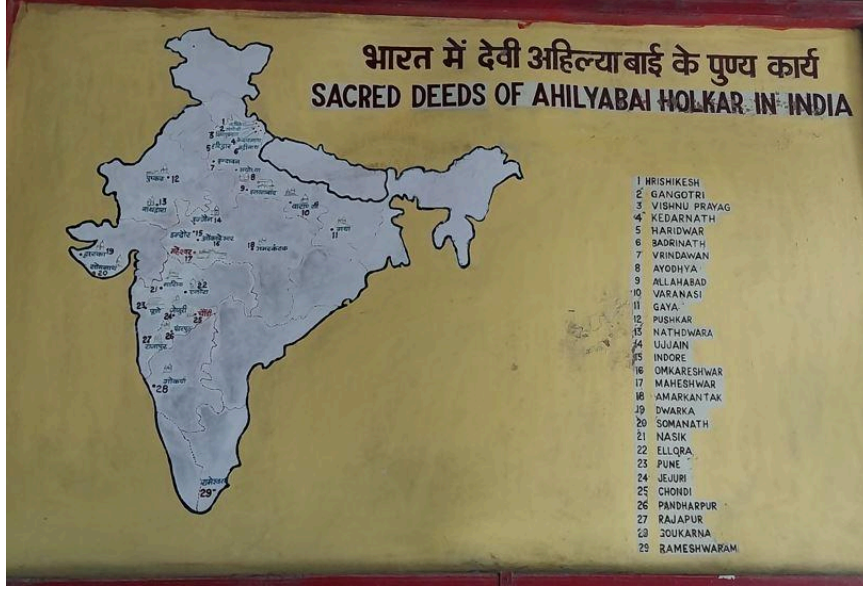 भारत में देवी अहिल्याबाई के पुण्य कार्य
SACRED DEEDS OF AHILYABAI HOLKAR IN INDIA
1 HRISHIKESH
2 GANGOTRI
3 VISHNU PRAYAG
4 KEDARNATH
5 HARIDWAR
6 BADRINATH
7 VRINDAWAN
8 AYODHYA
9 ALLAHABAD
10 VARANASI
11 GAYA
12 PUSHKAR
13 NATHDWARA
14 UJJAIN
15 INDORE
16 OMKARESHWAR
17 MAHESHWAR
18 AMARKANTAK
19 DWARKA
20 SOMANATH
21 NASIK
22 ELLORA
23 PUNE
24 JEJURI
25 CHONDI
26 PANDHARPUR
27 RAJAPUR
28 GOUKARNA
29 RAMESHWARAM
1
2
3
4
5 हरिद्वार
6
7
8
9
पुष्कर 12
10
13
14
11 गया
इन्दौर 15
16
18 अमरकंटक
महेश्वर
17
द्वारका 19
सोमनाथ
20
21 नासिक
22
23 पुणे
24 जेजुरी
25
26
27 राजापुर
28
29